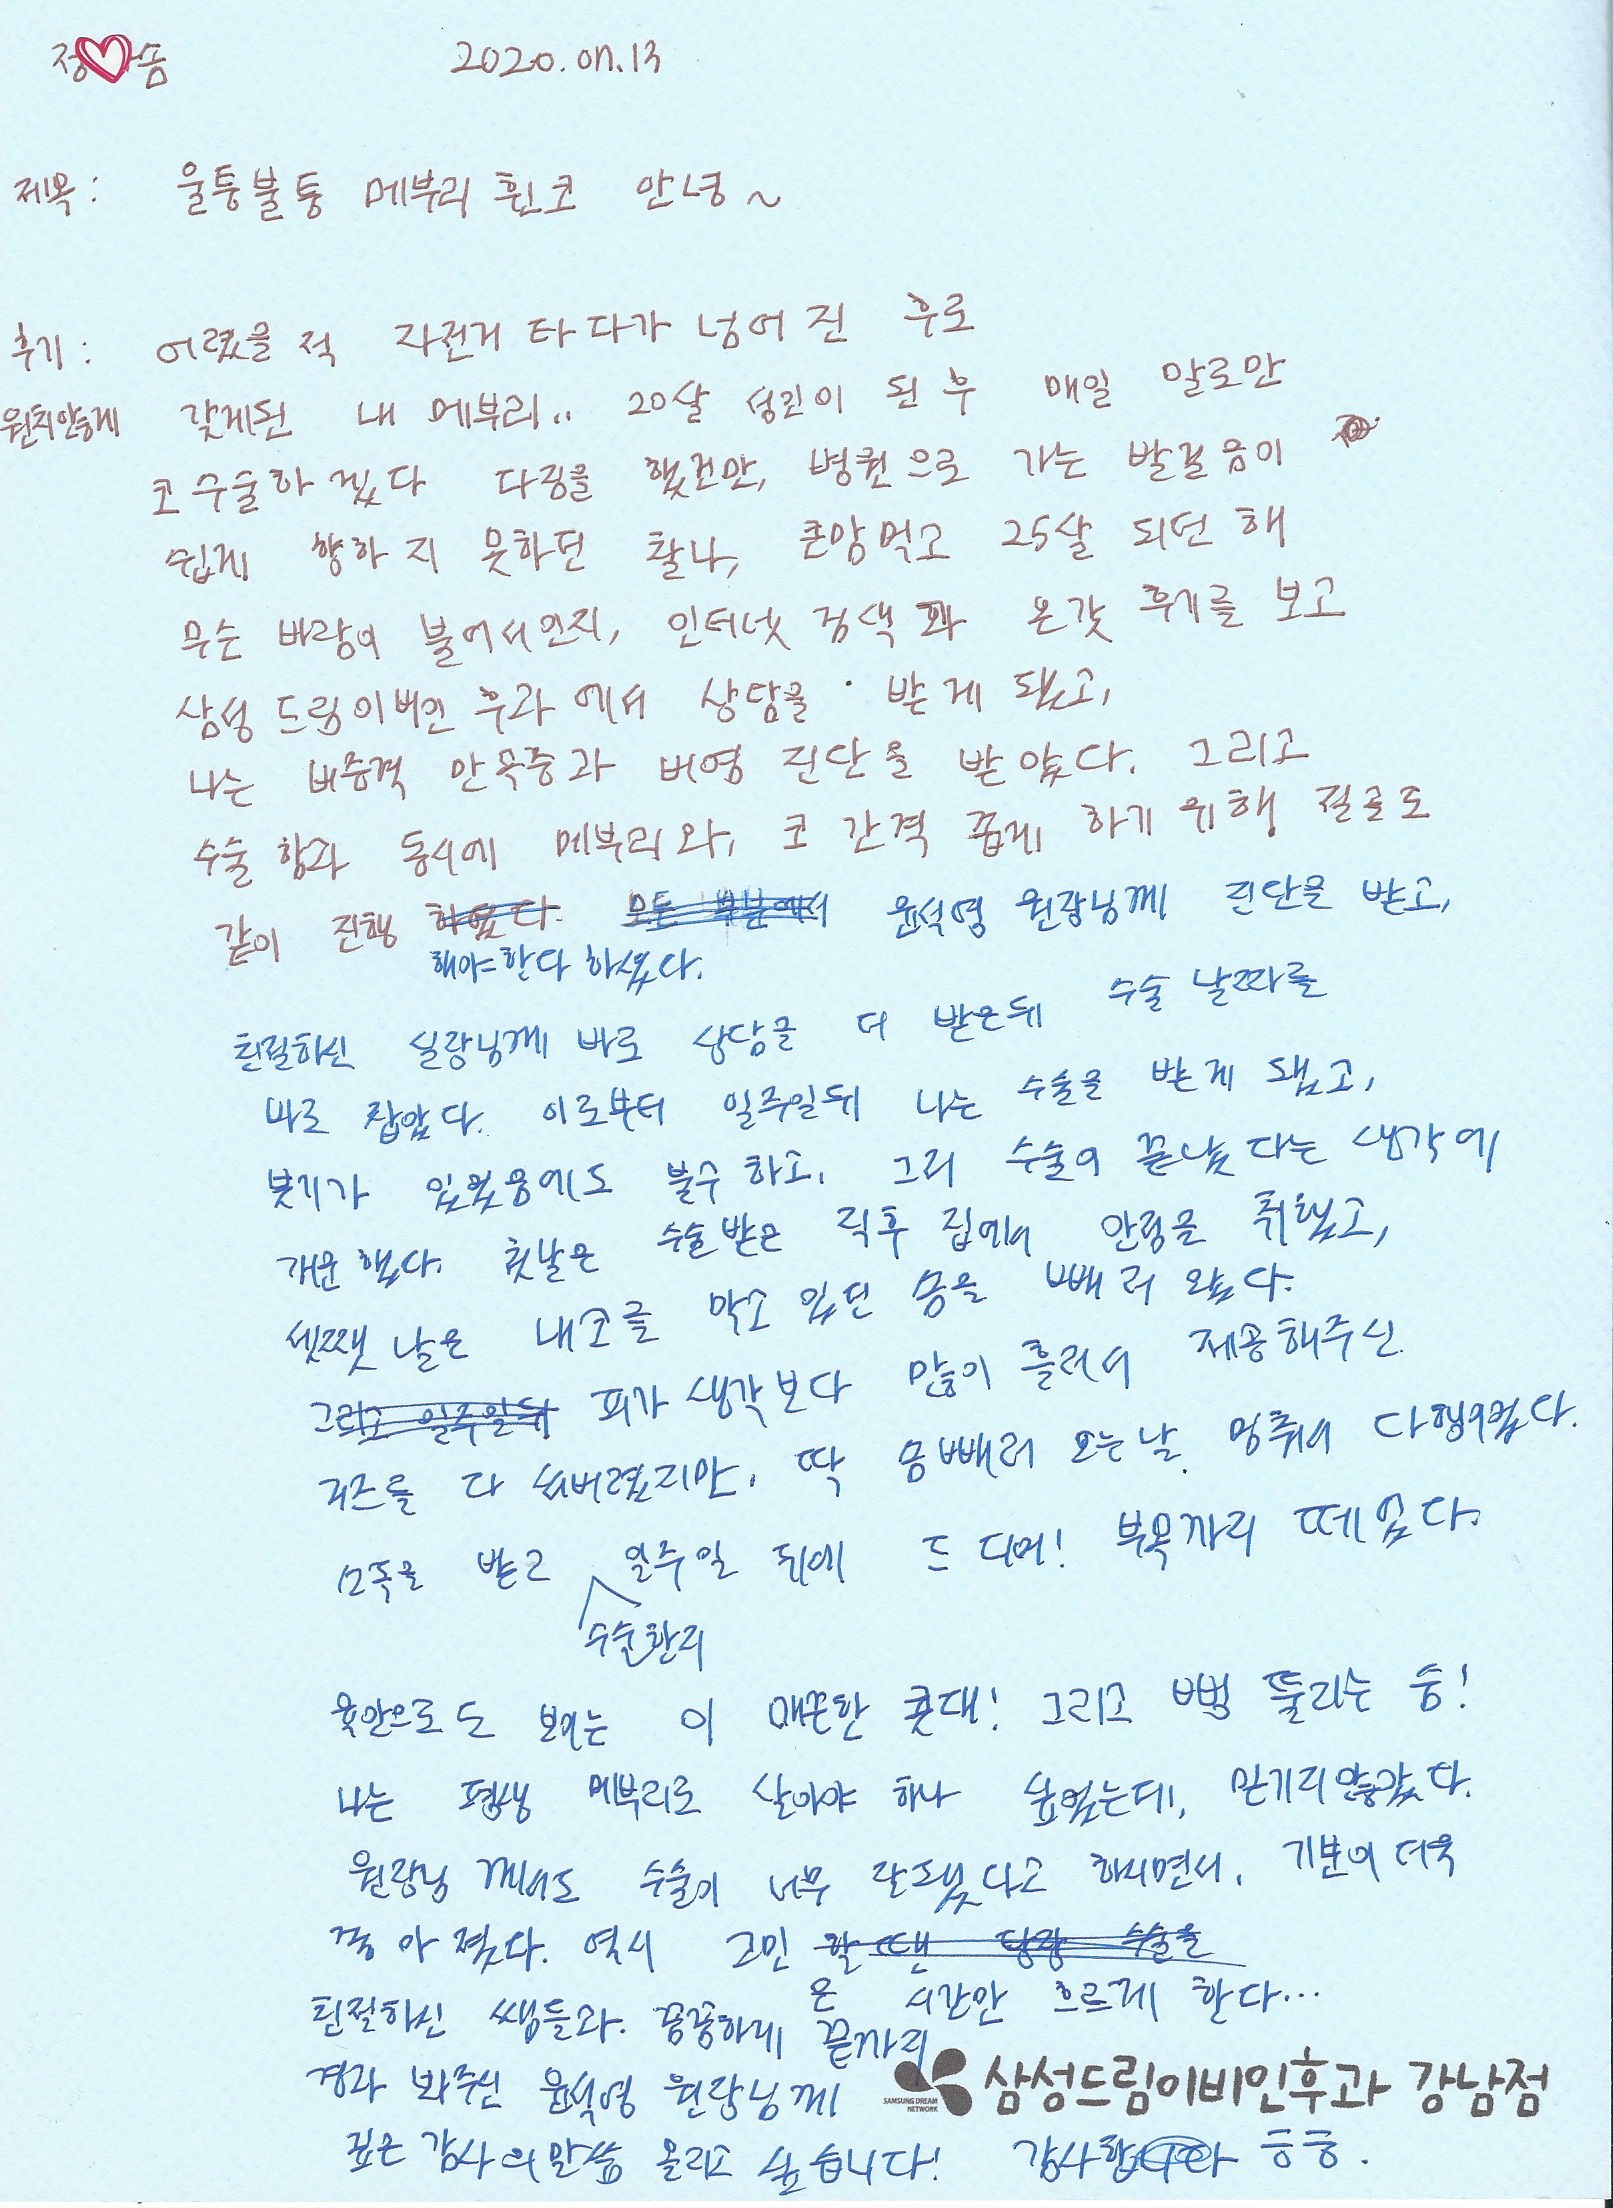 정 솜 2020.07.13
제목 : 울퉁불퉁 메부리 휜코 안녕~
후기 : 어렸을 적 자전거 타다가 넘어진 후로
원치않게 갖게된 내 메부리.. 20살 성인이 된 후 매일 말로만
코수술하겠다 다짐을 했건만, 병원으로 가는 발걸음이
쉽게 향하지 못하던 찰나, 큰맘먹고 25살 되던 해
무슨 바람이 불어서인지, 인터넷 검색과 온갖 후기를 보고
삼성드림이비인후과에서 상담을 받게 됐고,
나는 비중격 만곡증과 비염 진단을 받았다. 그리고
수술함과 동시에 메부리와, 코 간격 좁게 하기위해 절골도
같이 진행 하였다. 모든 부분에서 윤석영 원장님께 진단을 받고,
해야한다 하셨다.
친절하신 실장님께 바로 상담을 더 받은뒤 수술 날짜를
바로 잡았다. 이로부터 일주일뒤 나는 수술을 받게 됐고,
붓기가 있었음에도 불구하고, 그저 수술이 끝났다는 생각에
개운했다. 첫날은 수술받은 직후 집에서 안정을 취했고,
셋쨋날은 내코를 막고있던 솜을 빼러 왔다.
그리고 일주일뒤 피가 생각보다 많이 흘러서 제공해주신
거즈를 다 써버렸지만, 딱 솜빼러 오는날 멈춰서 다행이었다.
소독을 받고 일주일 뒤에 드디어! 부목까지 떼었다.
수술한지
육안으로도 보이는 이 매끈한 콧대! 그리고 뻥 뚫리는 숨!
나는 평생 메부리로 살아야 하나 싶었는데, 믿기지않았다.
원장님께서도 수술이 너무 잘됐다고 하시면서, 기분이 더욱
좋아졌다. 역시 고민 할땐 당장 수술을
은 시간만 흐르게 한다...
친절하신 쌤들과. 꼼꼼하게 끝까지
경과 봐주신 윤석영 원장님께
깊은 감사의말씀 올리고 싶습니다! 감사합니다 ㅎㅎ.
SAMSUNG DREAM NETWORK 삼성드림이비인후과 강남점